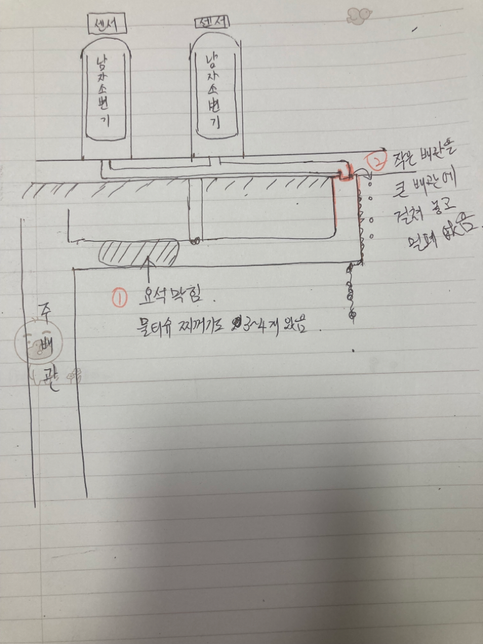 센서
센서
남자소변기
남자소변기
② 작은 배관을
큰 배관에
걸쳐 놓고
밀폐 않음.
① 요석 막힘.
물티슈 찌꺼기도 3~4개 있음.
주배관